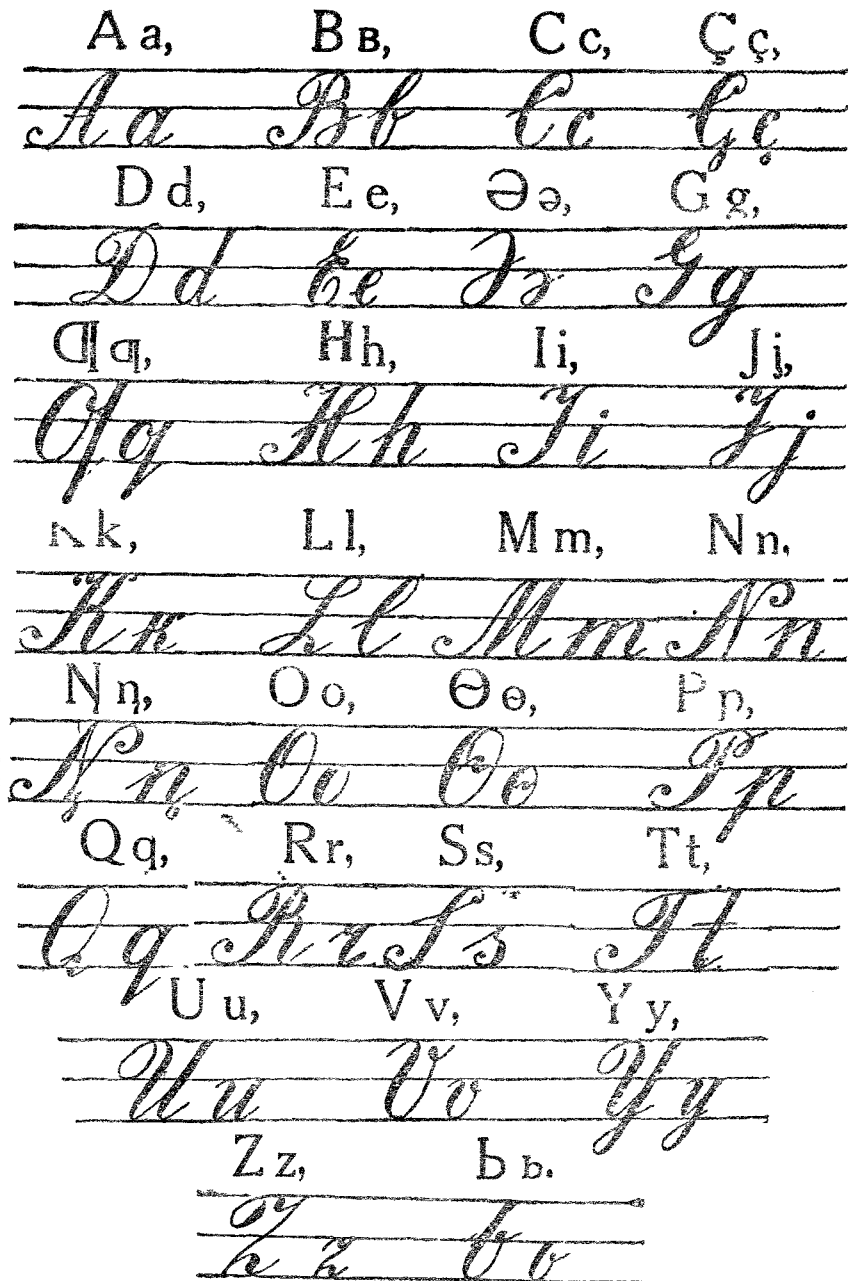 A a, B ʙ, C c, Ç ç,
A a B b C c Ç ç
D d, E e, Ə ə, G g,
D d E e Ə ə G g
Ƣ ƣ, H h, I i, J j,
Ƣ ƣ H h I i J j
K k, L l, M m, N n,
K k L l M m N n
Ꞑ ꞑ, O o, Ɵ ɵ, P p,
Ꞑ ꞑ O o Ɵ ɵ P p
Q q, R r, S s, T t,
Q q R r S s T t
U u, V v, Y y,
U u V v Y y
Z z, Ь ь.
Z z Ь ь